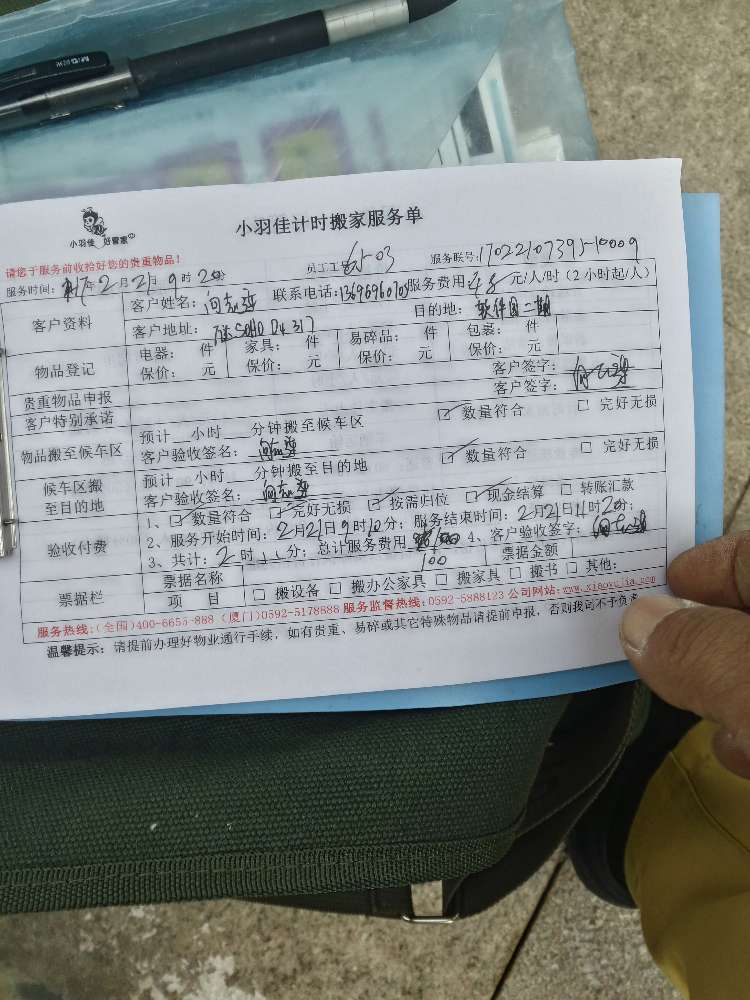 小羽佳 好管家
小羽佳计时搬家服务单
请您于服务前收拾好您的贵重物品!
员工工号 03 服务联号:
服务时间: 年2月21日9时20分
客户资料 客户姓名: 联系电话: 服务费用 48 元/人/时(2小时起/人)
客户地址: SOHO D4 317 目的地: 软件园二期
物品登记 电器: 件 家具: 件 易碎品: 件 包裹: 件
保价: 元 保价: 元 保价: 元 保价: 元
贵重物品申报 客户签字:
客户特别承诺 客户签字:
物品搬至候车区 预计__小时__分钟搬至候车区 ☑ 数量符合 □ 完好无损
客户验收签名:
候车区搬至目的地 预计__小时__分钟搬至目的地 ☑ 数量符合 □ 完好无损
客户验收签名:
验收付费 1、☑ 数量符合 ☑ 完好无损 ☑ 按需归位 ☑ 现金结算 □ 转账汇款
2、服务开始时间: 2月21日9时20分; 服务结束时间: 2月21日11时20分;
3、共计: 2时 分; 总计服务费用 100 4、客户验收签字:
票据栏 票据名称 票据金额
项 目 □ 搬设备 □ 搬办公家具 □ 搬家具 □ 搬书 □ 其他:
服务热线:(全国)400-6655-888 (厦门)0592-5178688 服务监督热线: 0592-5888123 公司网站: www.xiaoyujia.com
温馨提示: 请提前办理好物业通行手续, 如有贵重、易碎或其它特殊物品请提前申报, 否则我司不予负责